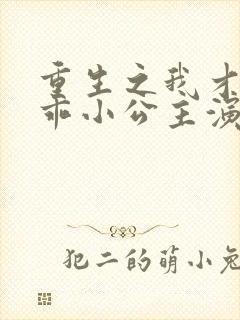 重生之我才
乖小公主演
犯二的萌小兔